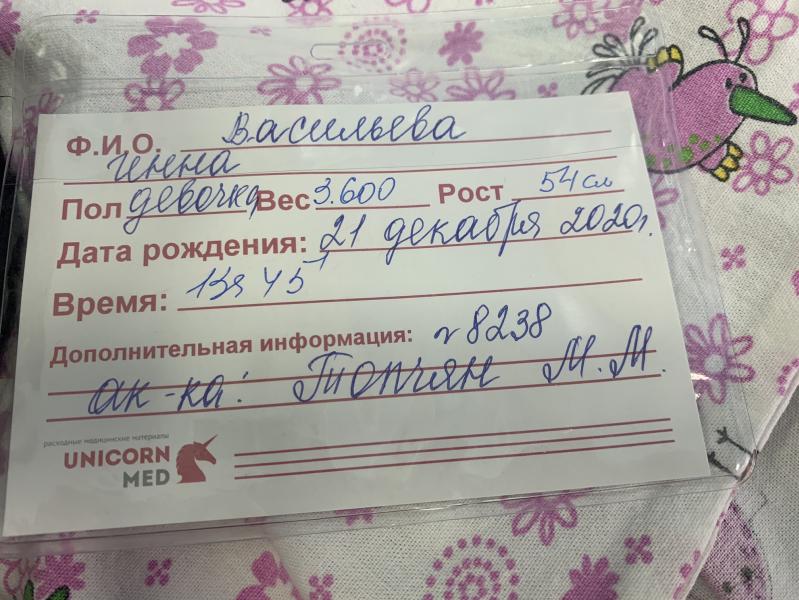 Ф.И.О. Васильева
Инна
Пол девочка Вес 3.600 Рост 54 см
Дата рождения: 21 декабря 2020г.
Время: 45
Дополнительная информация: 8238
ак-ка: Топчян М.М.
расходные медицинские материалы
UNICORN
MED